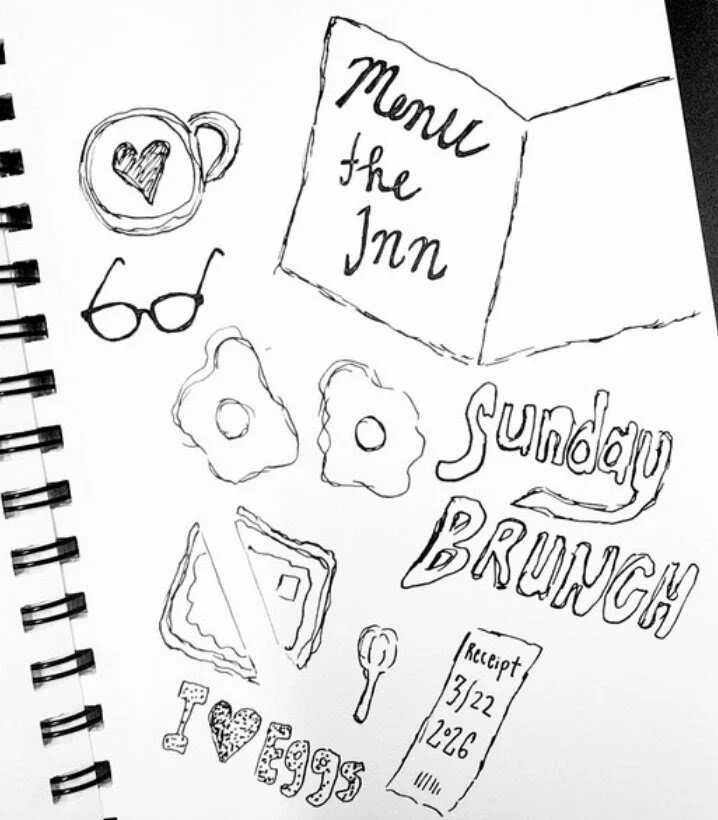 Menu
the
Inn
Sunday
BRUNCH
Receipt
3/22
2026
I ♥ Eggs